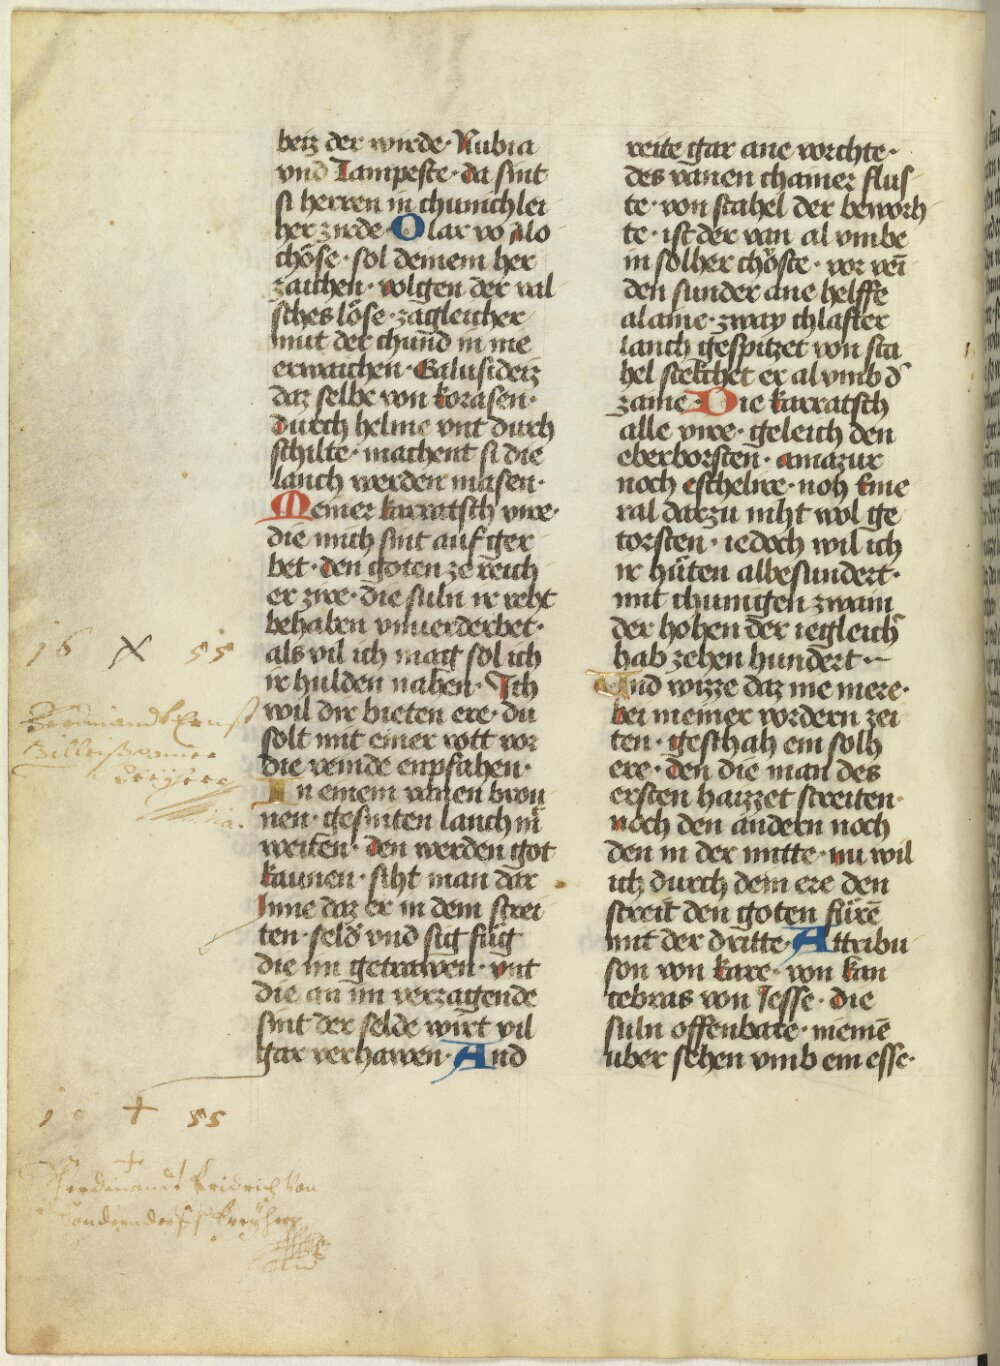 beiz der wirde· Rubia
vnd Tampeste· da sint
si herren in chunichlei
her zirde· Olax vo Alo
chöse· sol deinem her
zaichen· volgen der val
sches löse· zagleicher
mut der chund in nie
erwaichen· Galusideiz
daz selbe von korasen·
durch helme vnt durch
schilte· machent si die
lanch werden masen·
Meiner karratsch vire·
die mich sint auf ger
bet· den goten ze reich
er zire· die suln ir rebt
behaben vnuerderbet·
als vil ich mag sol ich
ir hulden nahen· Ich
wil dir bieten ere· du
solt mit einer rott vor
die veinde enpfahen·
In einem vanen brou
nen· gesniten lanch nı
weiten· den werden got
kaunen· siht man dar
Inne daz er in dem strei
ten· seld vnd sig füg
die im getrawen· vnt
die an im verzagende
sint der selde wirt vil
gar verhawen· And
reite gar ane vorchte·
des vanen chainer flus
te· von stahel der beworh
te· ist der van al vmbe
in solher chöste· vor vei
den sunder ane helffe
alaine· zway chlafter
lanch gespitzet von sta
hel stekchet er al vmb d
zaine· Die karratsch
alle vire· geleich den
eberborsten· amazur
noch eschelire· noh Eme
ral darzu niht wol ge
torsten· iedoch wil ich
ir hüten albesundert·
mit chunigen zwain
der hohen der iegleich
hab zehen hundert·
Und wizze daz nie mere·
bei meiner vordern zei
ten· geschah ein solh
ere· den die man des
ersten haizzet streiten·
noch den andern noch
den in der mitte· nu wil
ich durch dein ere den
streit den goten fürē
mit der dritte· Attribu
son von kare· von kan
tebras von Jesse· die
suln offenbare· niemē
uber sehen vmb ein esse·
16 X 55
Ferdinandt Ernst
16 + 55
Ferdinandt Fridrich Von
freyherr